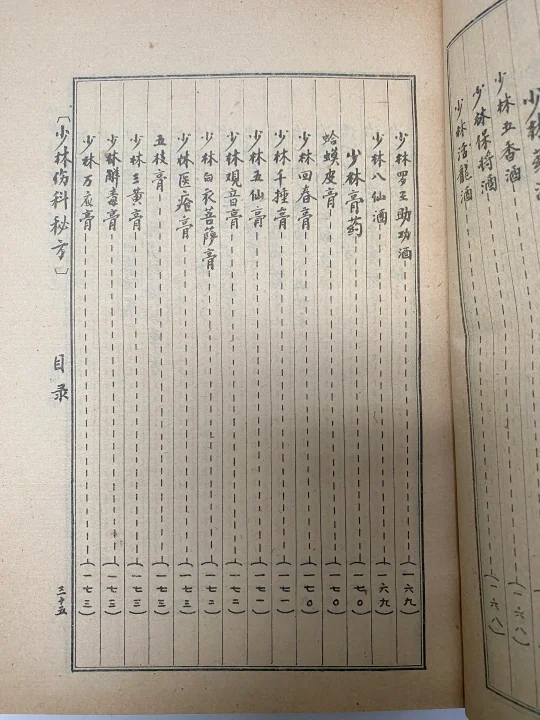 少林五香酒
少林保将酒
少林活龍酒
少林罗王助功酒（一六九）
少林八仙酒（一六九）
少林膏药（一七0）
蛤蟆皮膏（一七0）
少林回春膏（一七0）
少林千捶膏（一七一）
少林五仙膏（一七一）
少林观音膏（一七二）
少林白衣菩萨膏（一七二）
少林医疮膏（一七三）
五枝膏（一七三）
少林三黄膏（一七三）
少林解毒膏（一七三）
少林万应膏（一七三）
［少林伤科秘方］ 目录 三十五